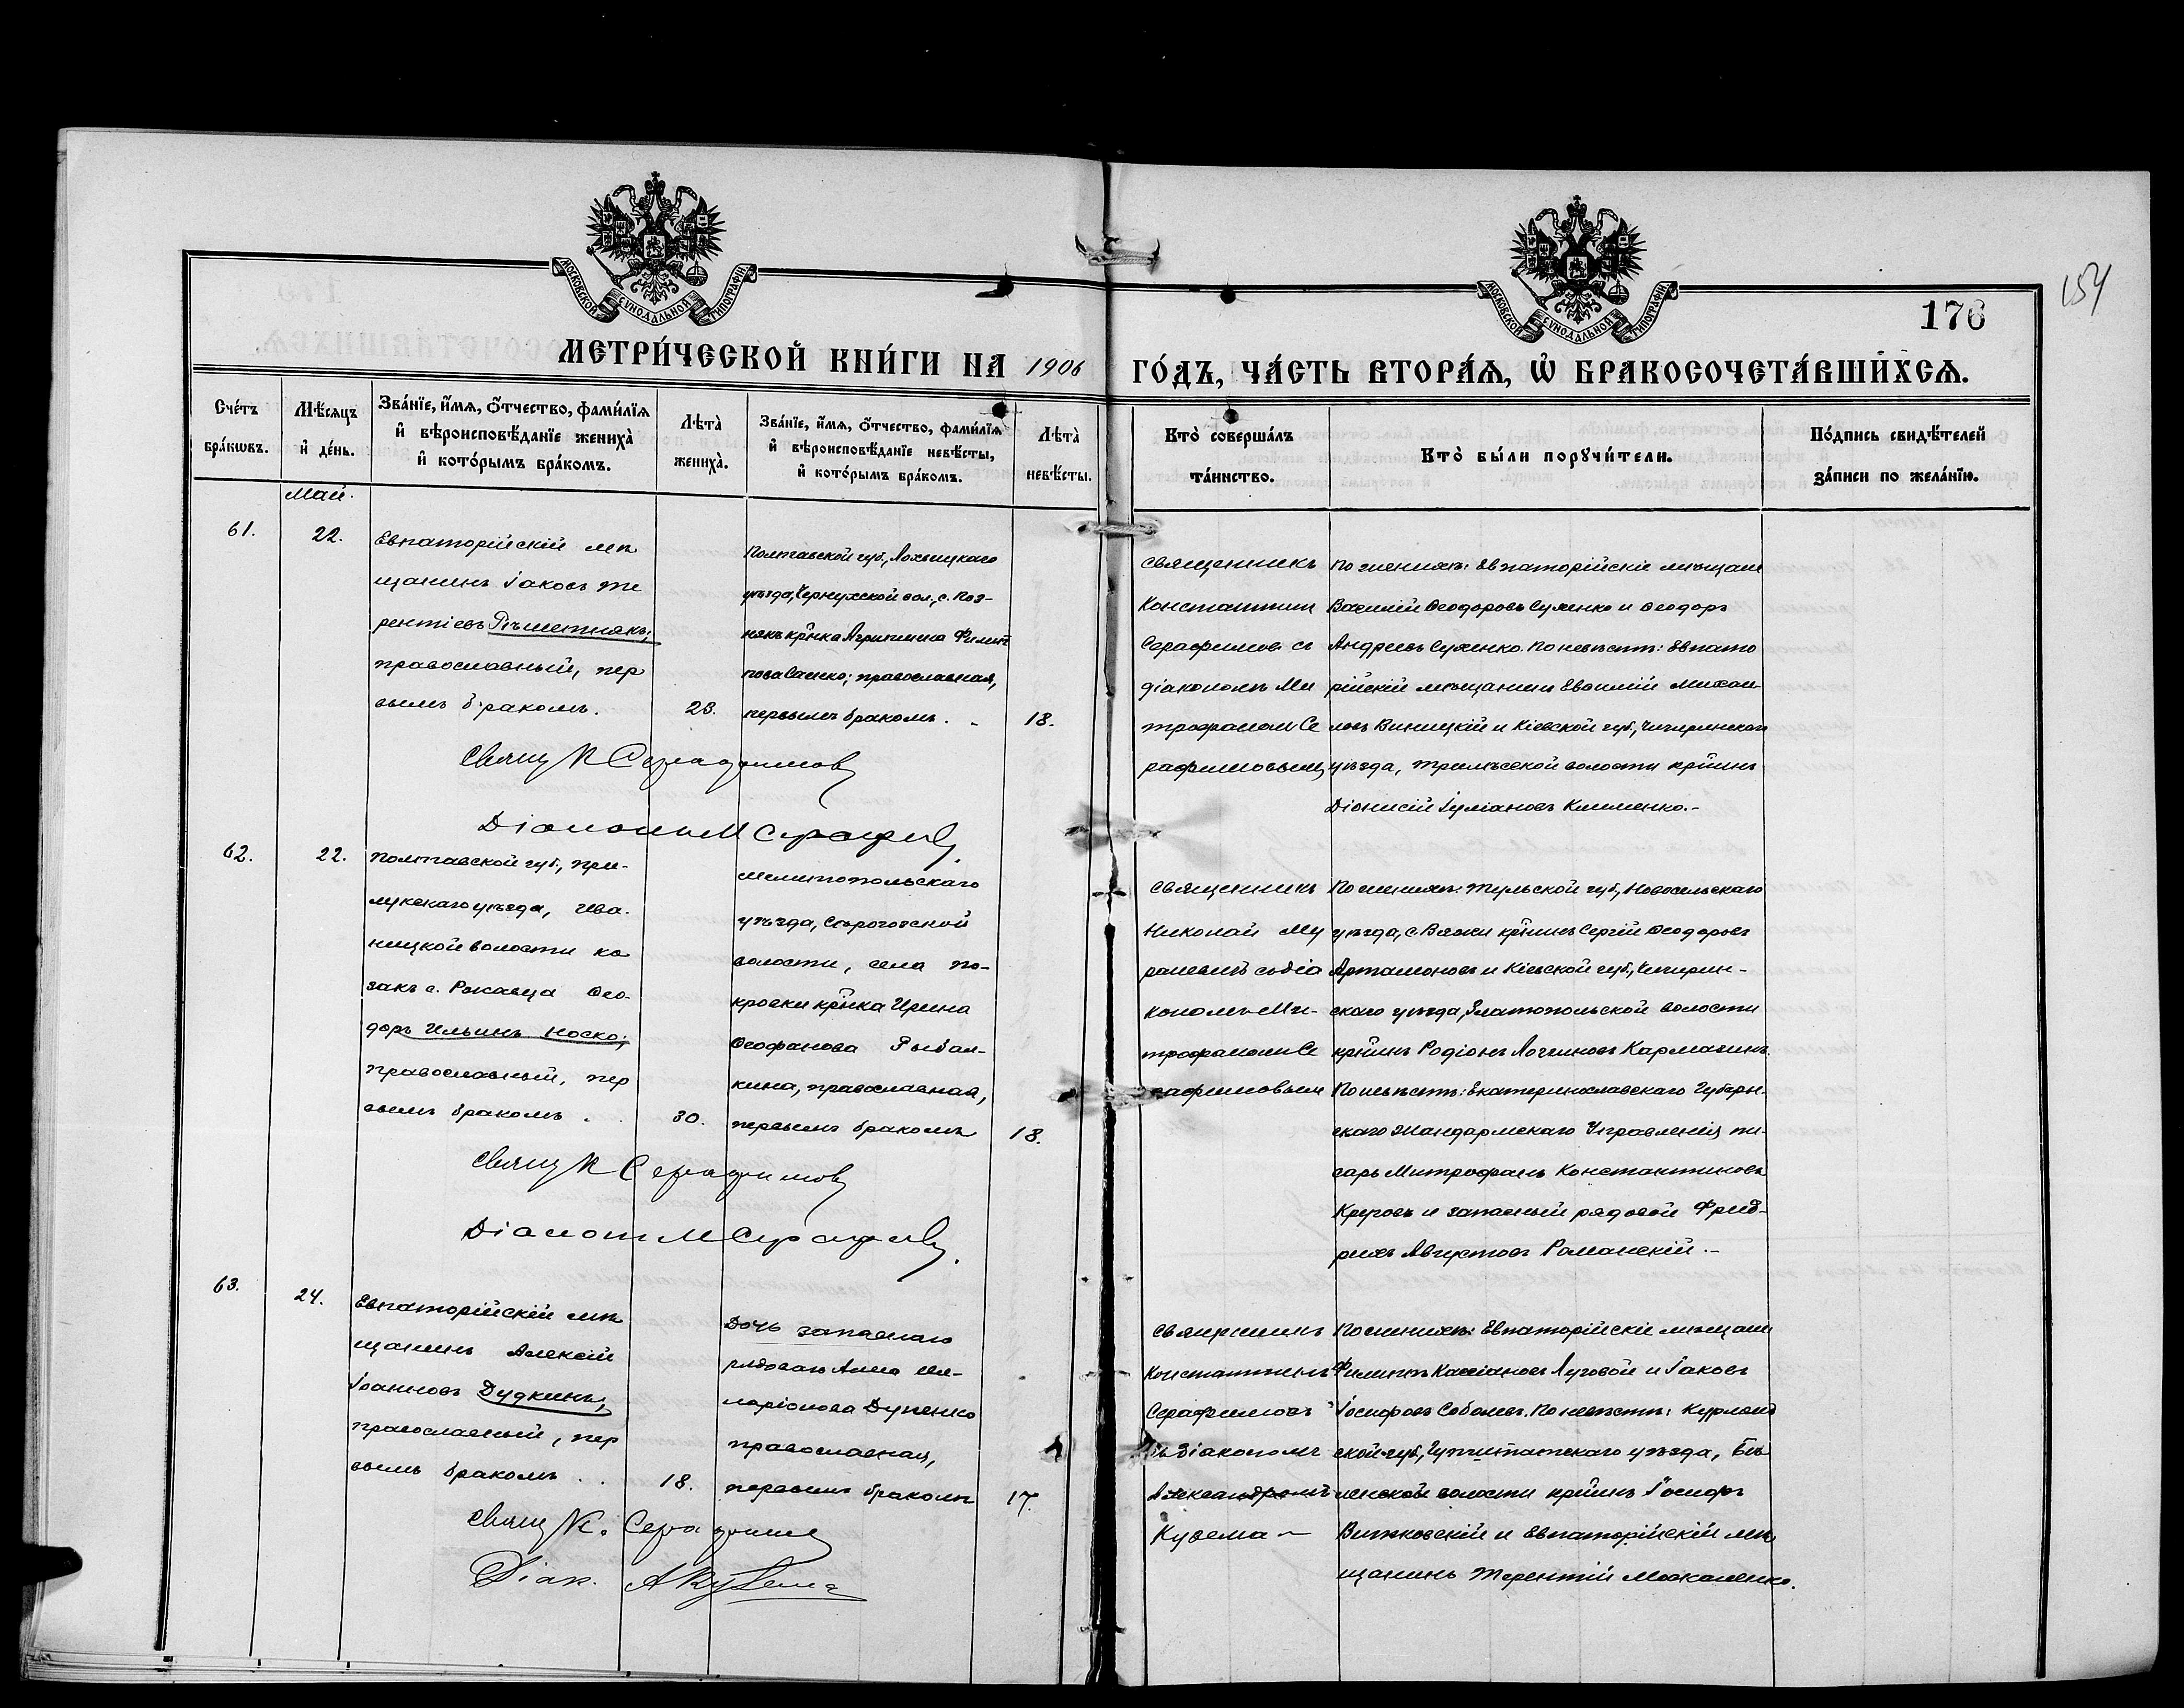 МОСКОВСКОЙ СѴНОДАЛЬНОЙ ТИПОГРАФІИ
МОСКОВСКОЙ СѴНОДАЛЬНОЙ ТИПОГРАФІИ
154
176
МЕТРИ́ЧЕСКОЙ КНИ́ГИ НА 1906 ГО́ДЪ, ЧА́СТЬ ВТОРА́Я, Ѡ҆ БРАКОСОЧЕТА́ВШИХСЯ.
Сче́тъ бра́кѡвъ.
Мѣ́сяцъ и҆ де́нь.
Зва́нїе, и҆́мя, ѻ҆́тчество, фами́лїя
и҆ вѣроисповѣ́данїе жениха̀
и҆ кото́рымъ бра́комъ.
Лѣта̀ жениха̀.
Зва́нїе, и҆́мя, ѻ҆́тчество, фами́лїя
и҆ вѣроисповѣ́данїе невѣ́сты,
и҆ кото́рымъ бра́комъ.
Лѣта̀ невѣ́сты.
Кто̀ соверша́лъ та́инство.
Кто̀ бы́ли порꙋчи́тели.
По́дпись свидѣ́телей за́писи по жела́нїю.
Май.
61.
22.
Евпаторійскій мѣ
щанинъ Іаковъ Те
рентіевъ Рѣшетнякъ;
православный, пер
вымъ бракомъ.
23.
Полтавской губ., Лохвицкаго
уѣзда, Чернухской вол., с. Поз-
някъ кр̃нка Агриппина Филип
пова Сапко; православная,
первымъ бракомъ. -
18.
Священникъ
Константинъ
Серафимовъ съ
діакономъ Ми
трофаномъ Се
рафимовымъ
По женихѣ: Евпаторійскіе мѣщане
Василій Ѳеодоровъ Сухенко и Ѳеодоръ
Андреевъ Сухенко. По невѣстѣ: Евпато
рійскій мѣщанинъ Евѳимій Михаи-
ловъ Виницкій и Кіевской губ., Чигиринскаго
уѣзда, волости кр̃нинъ
Діонисій Іуліановъ Клименко.-
Свящ К Серафимовъ
Діаконъ М Серафимовъ.
62.
22.
Полтавской губ., При-
лукскаго уѣзда, Ива-
ницкой волости ка
закъ с. Ржавца Ѳео-
доръ Ильинъ Носко;
православный, пер
вымъ бракомъ .
30.
Мелитопольскаго
уѣзда, Сѣрогозской
волости, села По-
кровки кр̃нка Ирина
Ѳеофанова Рыбал-
кина, православная,
первымъ бракомъ
18.
Священникъ
Николай Му
раневичъ съ діа
кономъ Ми-
трофаномъ Се
рафимовымъ
По женихѣ: Тульской губ., Новосельскаго
уѣзда, с. Вяжи кр̃нинъ Сергій Ѳеодоровъ
Артамоновъ и Кіевской губ., Чигирин-
скаго уѣзда, Златопольской волости
кр̃нинъ Родіонъ Логгиновъ Кармазинъ.
По невѣстѣ: Екатеринославскаго Губерн-
скаго Жандармскаго Управленія пи-
сарь Митрофанъ Константиновъ
Круговъ и запасный рядовой Фрид-
рихъ Августовъ Романскій.-
Свящ К Серафимовъ
Діаконъ М Серафимовъ.
63.
24.
Евпаторійскій мѣ
щанинъ Алексій
Іоанновъ Дудкинъ,
православный, пер
вымъ бракомъ . .
18.
Дочь запаснаго
рядоваго Анна Ил-
ларіонова Дупенко
православная,
первымъ бракомъ
17.
Священникъ
Константинъ
Серафимовъ
съ діакономъ
Александромъ
Куземa -
По женихѣ: Евпаторійскіе мѣщане
Филиппъ Кассіановъ Луговой и Іаковъ
Іосифовъ Соболевъ. По невѣстѣ: Курлянд
ской губ., уѣзда,
волости кр̃нинъ Іосифъ
Витковскій и Евпаторійскій мѣ
щанинъ Терентій Москаленко.
Свящ К. Серафимовъ
Діак. А Кузема